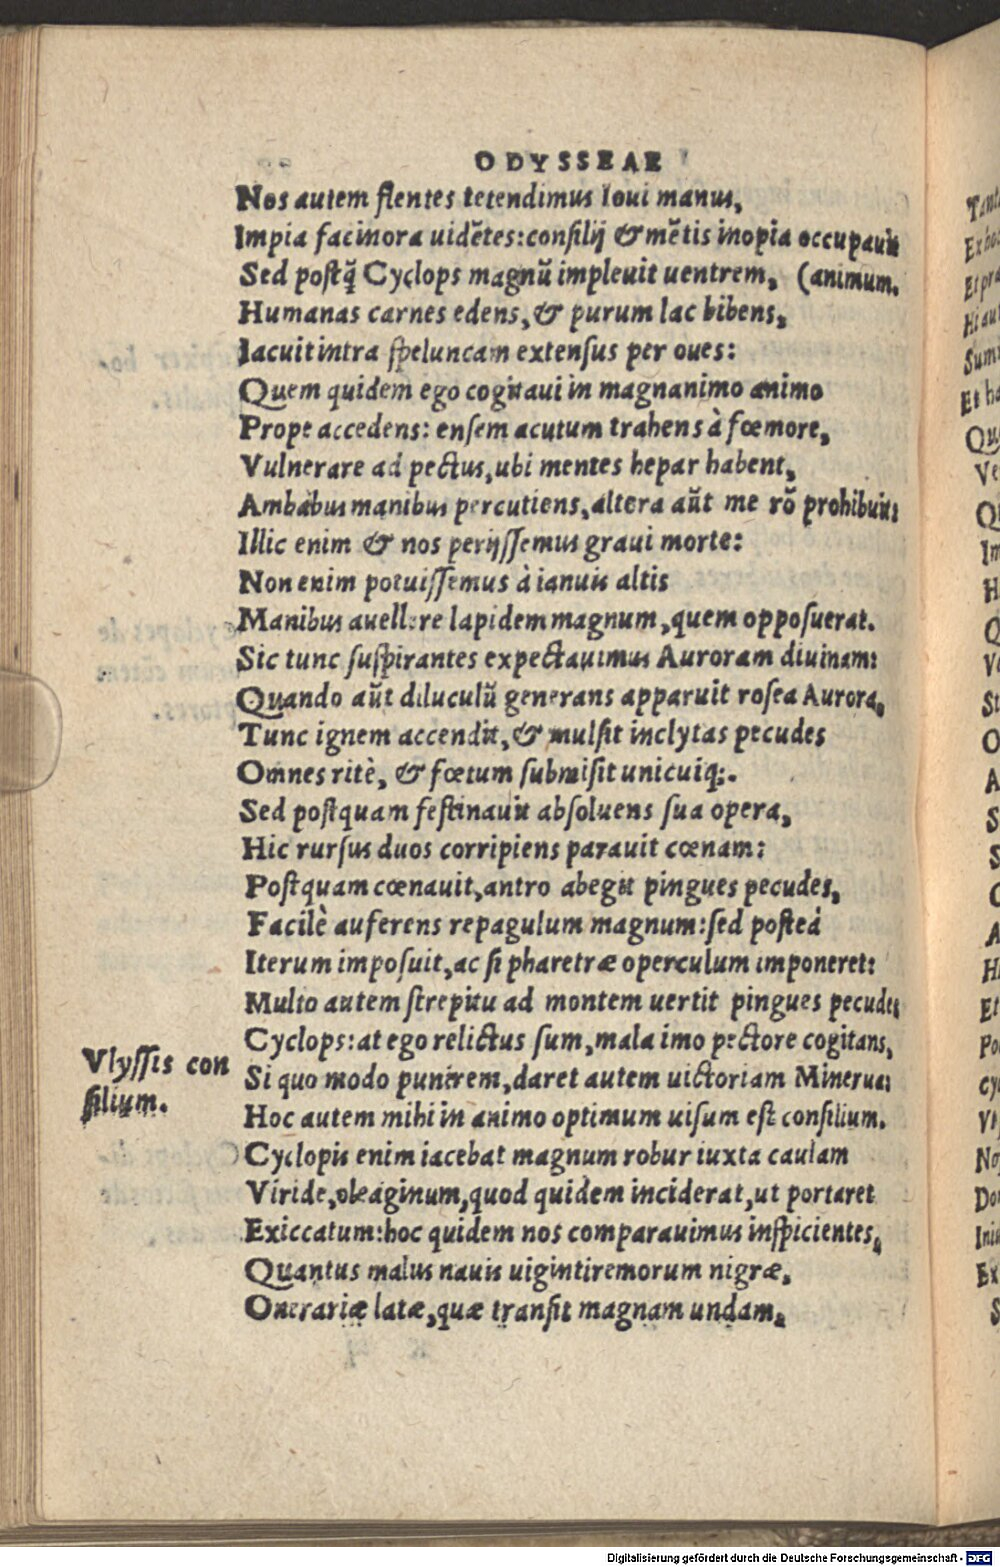 ODYSSEAE
Nos autem flentes tetendimus Ioui manus,
Impia facinora uidẽtes: consilij & mẽtis inopia occupauit
Sed postꝗ̃ Cyclops magnũ impleuit uentrem, (animum.
Humanas carnes edens, & purum lac bibens,
Iacuit intra speluncam extensus per oues:
Quem quidem ego cogitaui in magnanimo animo
Prope accedens: ensem acutum trahens à fœmore,
Vulnerare ad pectus, ubi mentes hepar habent,
Ambabus manibus percutiens, altera aũt me rõ prohibuit:
Illic enim & nos perijssemus graui morte:
Non enim potuissemus à ianuis altis
Manibus auellere lapidem magnum, quem opposuerat.
Sic tunc suspirantes expectauimus Auroram diuinam:
Quando aũt diluculũ generans apparuit rosea Aurora,
Tunc ignem accendit, & mulsit inclytas pecudes
Omnes ritè, & fœtum submisit unicuiq;.
Sed postquam festinauit absoluens sua opera,
Hic rursus duos corripiens parauit cœnam:
Postquam cœnauit, antro abegit pingues pecudes,
Facilè auferens repagulum magnum: sed posteà
Iterum imposuit, ac si pharetræ operculum imponeret:
Multo autem strepitu ad montem uertit pingues pecudes
Cyclops: at ego relictus sum, mala imo pectore cogitans,
Si quo modo punirem, daret autem uictoriam Minerua:
Hoc autem mihi in animo optimum uisum est consilium.
Cyclopis enim iacebat magnum robur iuxta caulam
Viride, oleaginum, quod quidem inciderat, ut portaret
Exiccatum: hoc quidem nos comparauimus inspicientes,
Quantus malus nauis uigintiremorum nigræ,
Onerariæ latæ, quæ transit magnam undam,
Vlyssis con
silium.
Digitalisierung gefördert durch die Deutsche Forschungsgemeinschaft - DFG